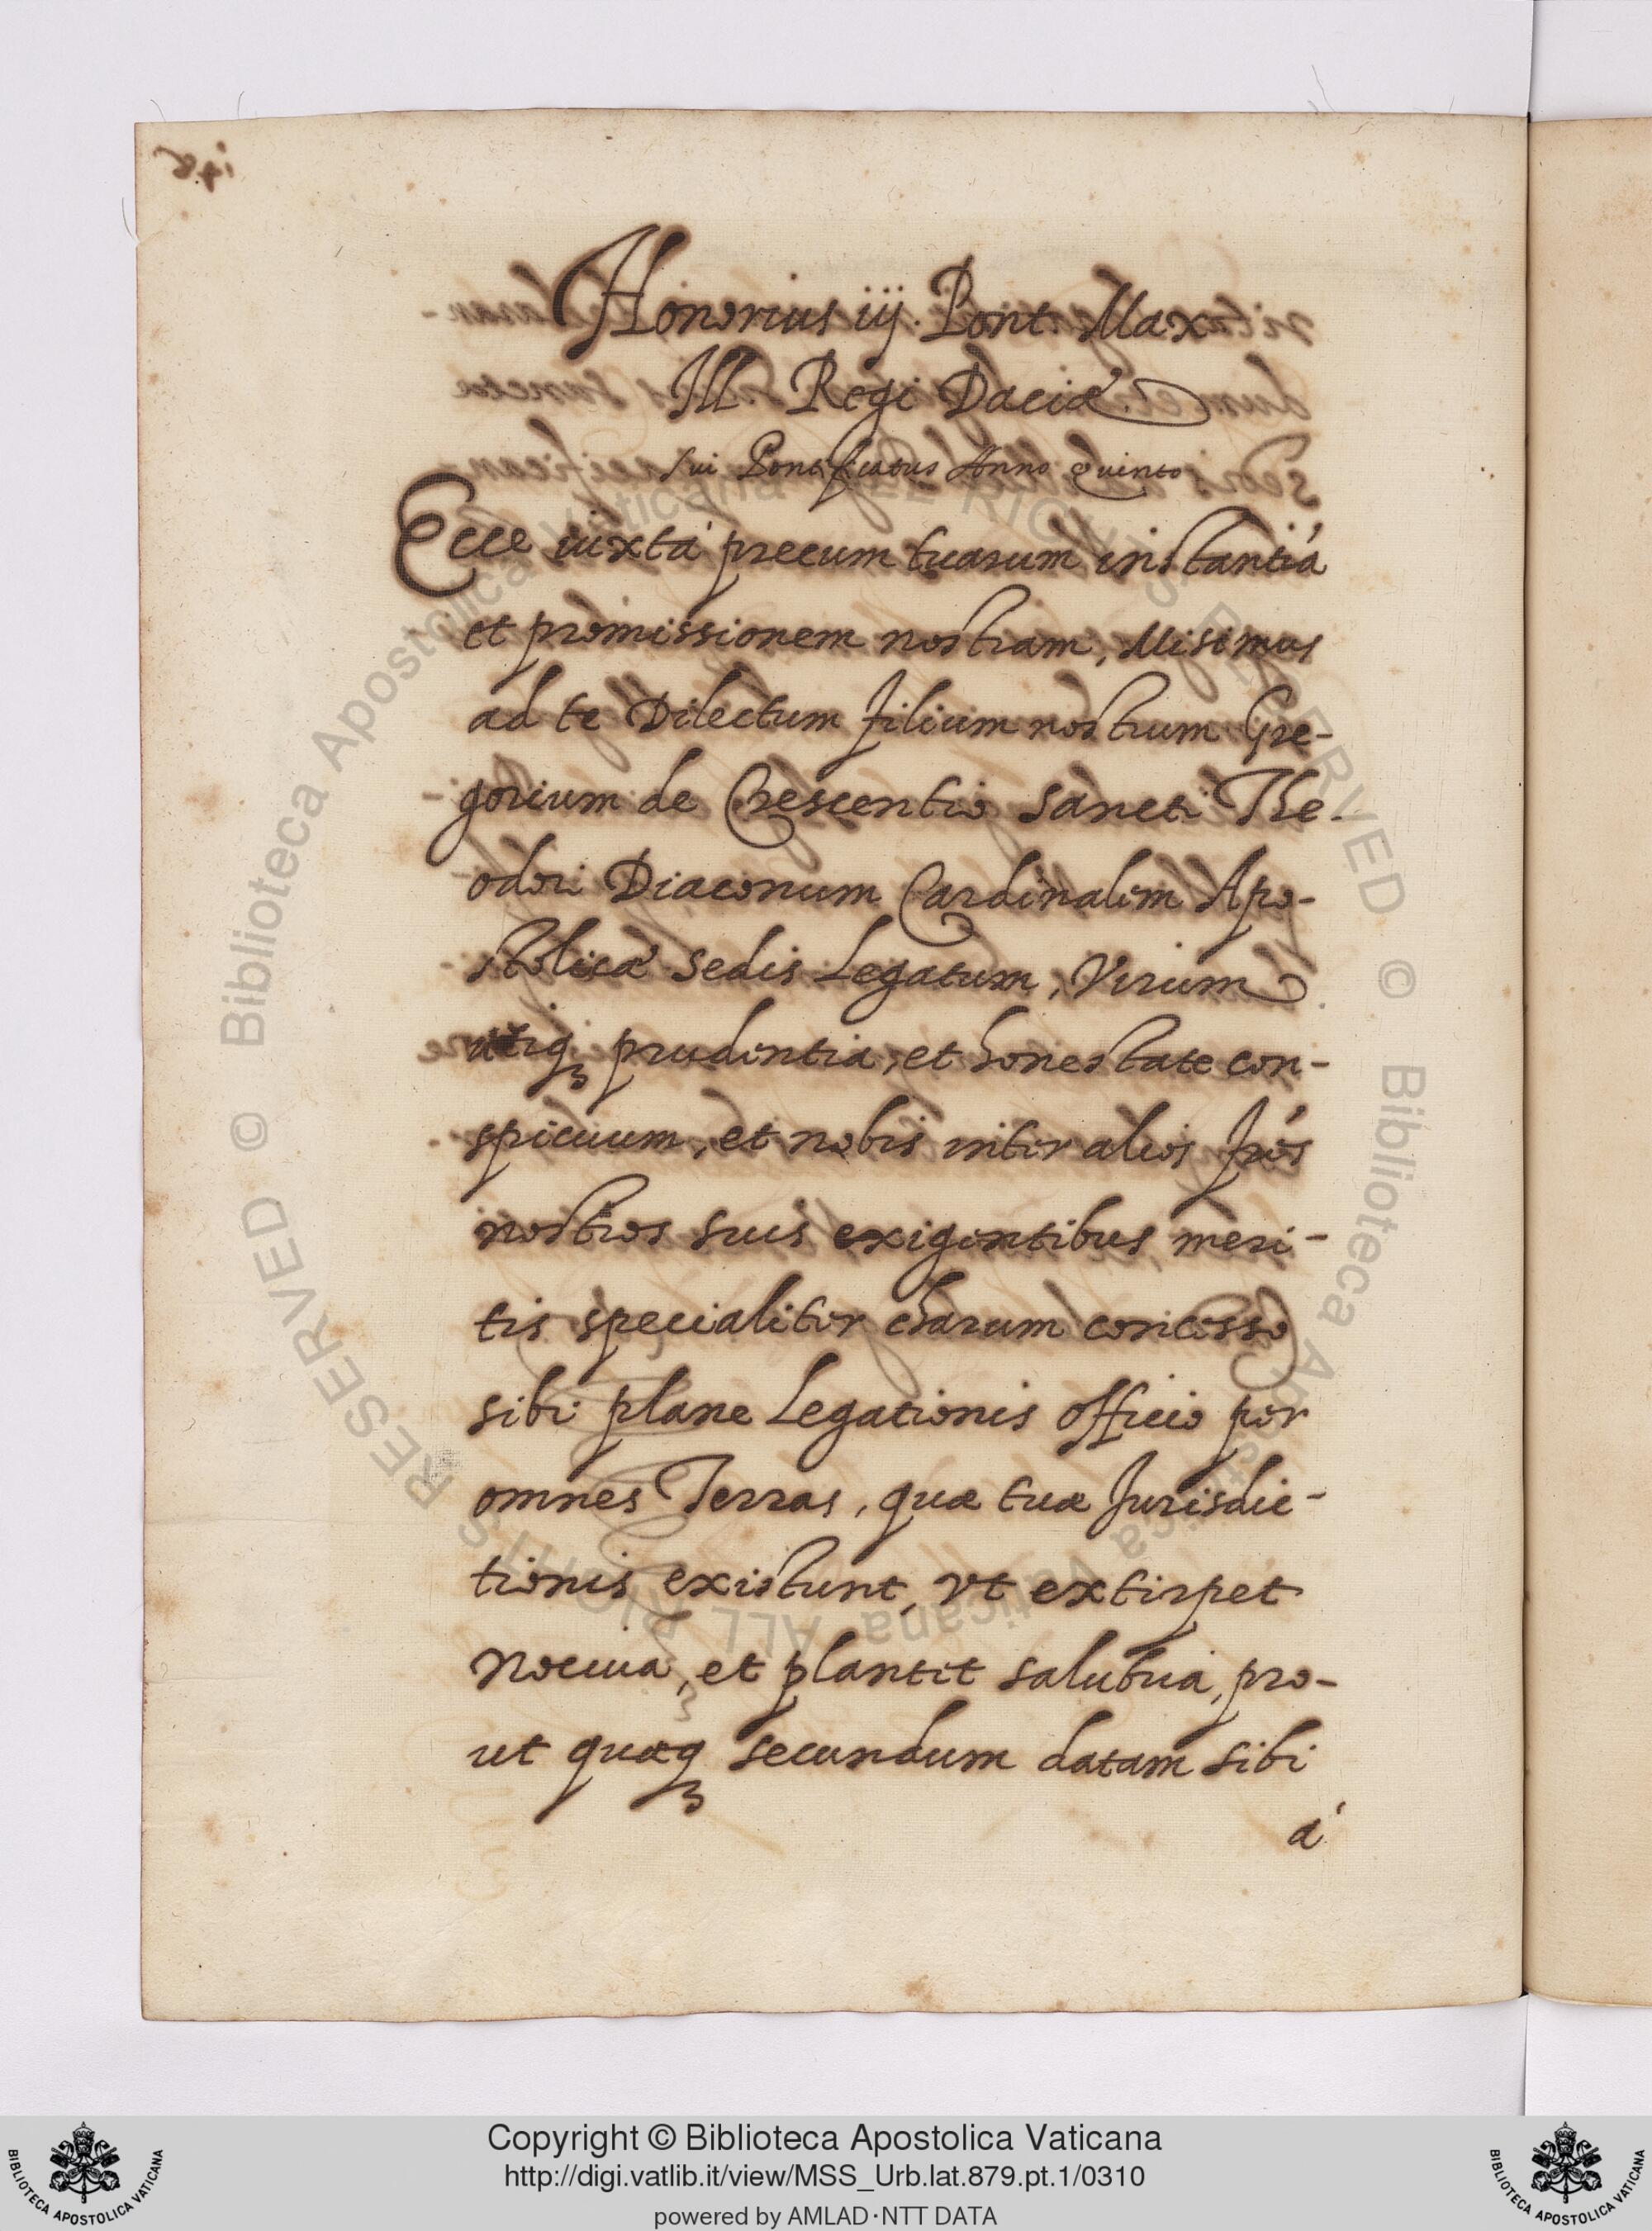 Honorius iij. Pont. Max.
Ill. Regi Daciæ.
sui Pontificatus Anno quinto
Ecce iuxtà precum tuarum instantiá
et promissionem nostram, Misimus
ad te Dilectum filium nostrum Gre-
gorium de Crescentio Sancti The-
odori Diaconum Cardinalem Apo-
stolicæ Sedis Legatum, Virum
utiq; prudentia, et honestate con-
spicuum, et nobis inter alios frẽs
nostros suis exigentibus meri-
tis specialiter charum concesso
sibi plane Legationis officio per
omnes Terras, quæ tuæ Jurisdic-
tionis existunt, vt extirpet
nociua, et plantet salubria, pro-
ut quæq; secundum datam sibi
á
Copyright © Biblioteca Apostolica Vaticana
http://digi.vatlib.it/view/MSS_Urb.lat.879.pt.1/0310
powered by AMLAD·NTT DATA
BIBLIOTECA APOSTOLICA VATICANA
BIBLIOTECA APOSTOLICA VATICANA
© Biblioteca Apostolica Vaticana ALL RIGHTS RESERVED © Biblioteca Apostolica Vaticana ALL RIGHTS RESERVED